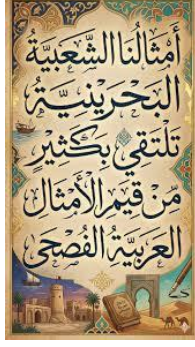 أَمْثَالُنَا الشَّعْبِيَّةُ
البَحْرَيْنِيَّةُ
تَلْتَقِي بِكَثِيْرٍ
مِنْ قِيَمِ الْأَمْثَالِ
العَرَبِيَّةِ الفُصْحَى